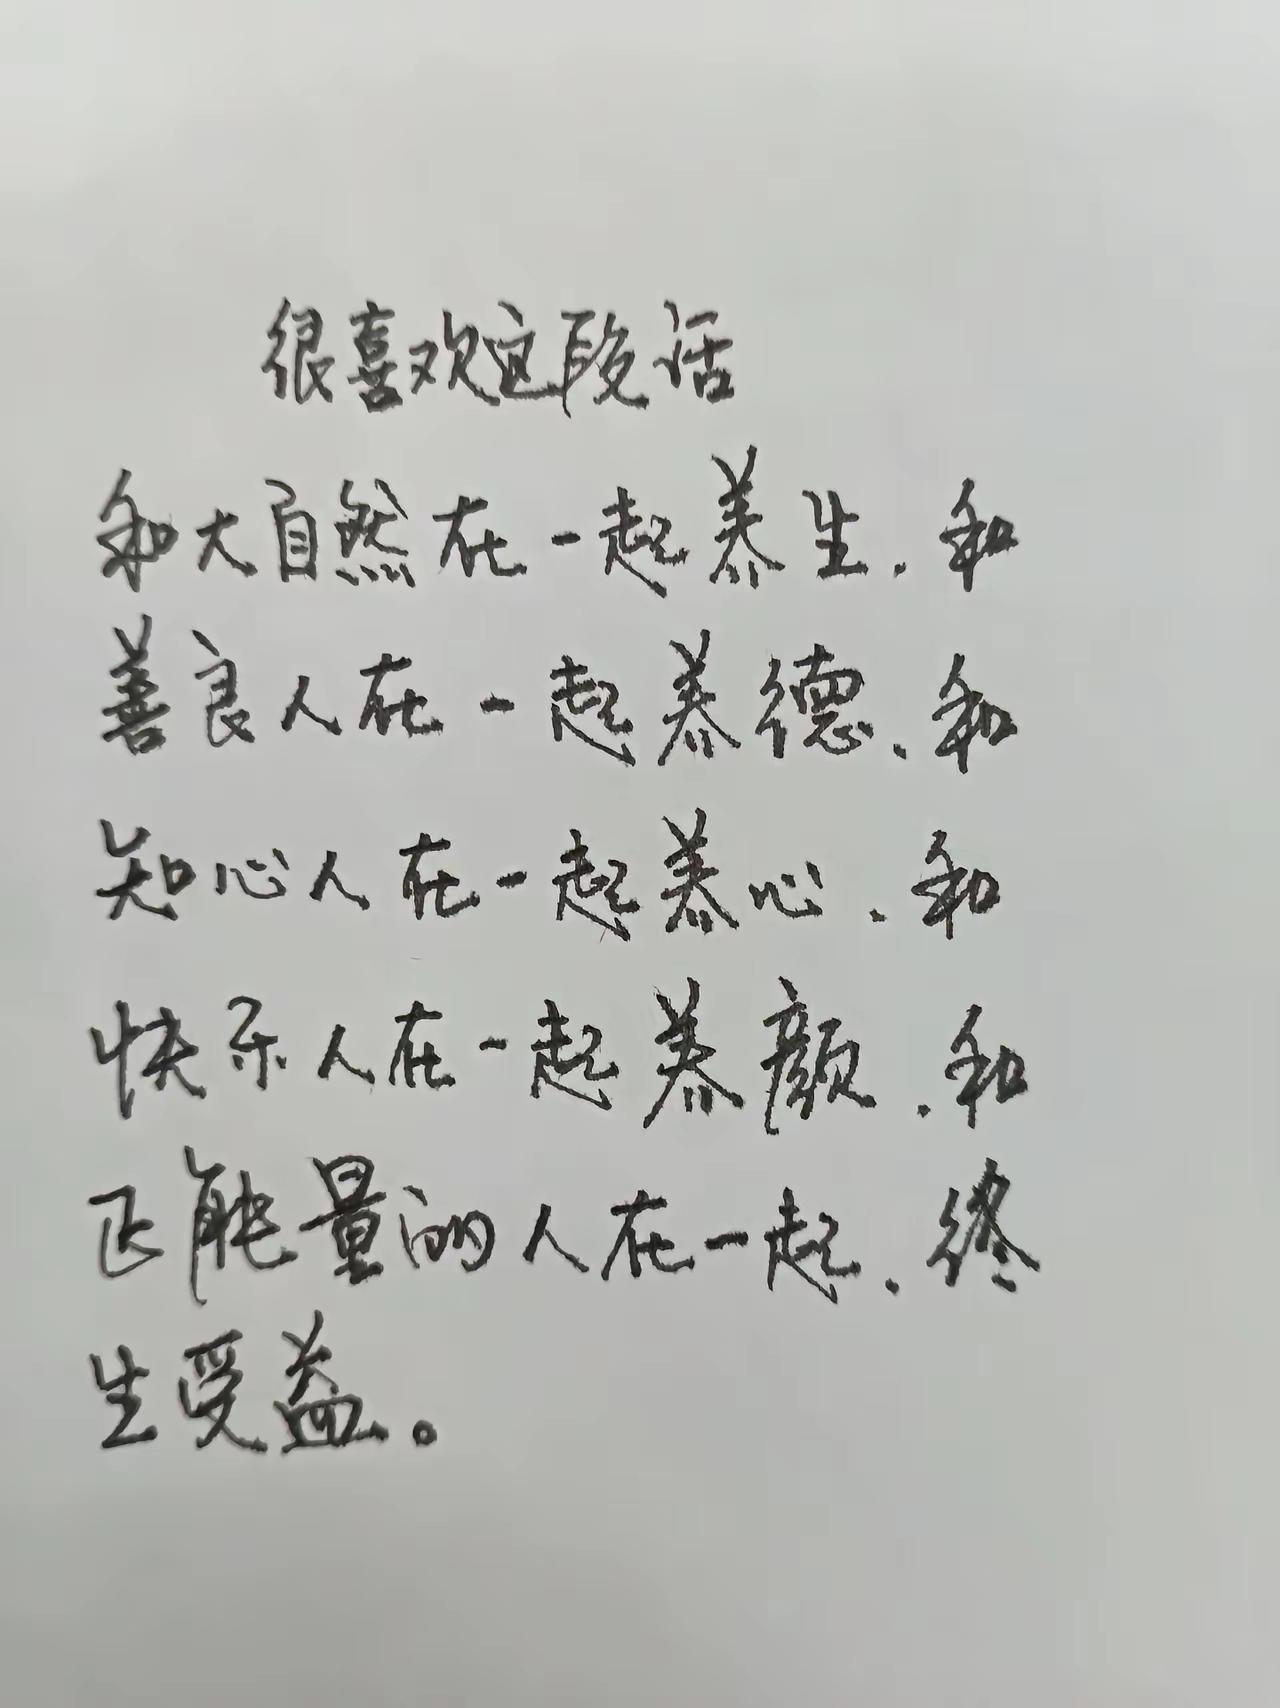 很喜欢这段话
和大自然在一起养生.和
善良人在一起养德.和
知心人在一起养心.和
快乐人在一起养颜.和
正能量的人在一起.终
生受益。